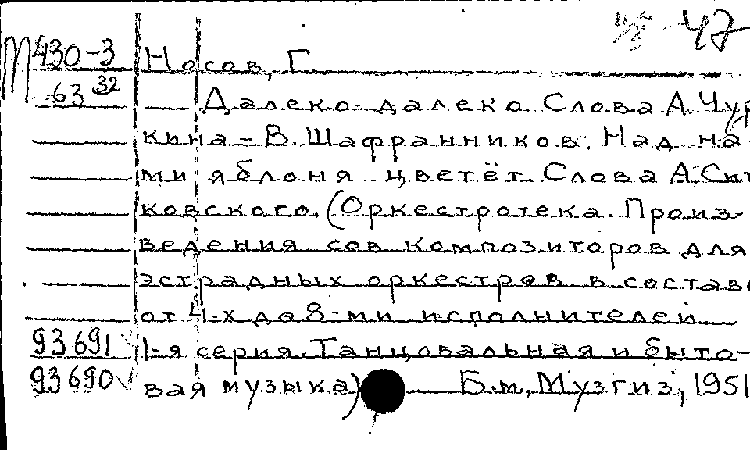 47
М430-3 Носов, Г.
63 32 — Далеко-далеко. Слова А. Чур
кина – В. Шафранников. Над на
ми яблоня цветёт. Слова А. Сит
ковского. (Оркестротека. Произ-
ведения сов. композиторов для
эстрадных оркестров в составе
от 4-х до 8-ми исполнителей
93691 1-я серия. Танцовальная и быто-
93690 вая музыка) Б.м., Музгиз, 1951